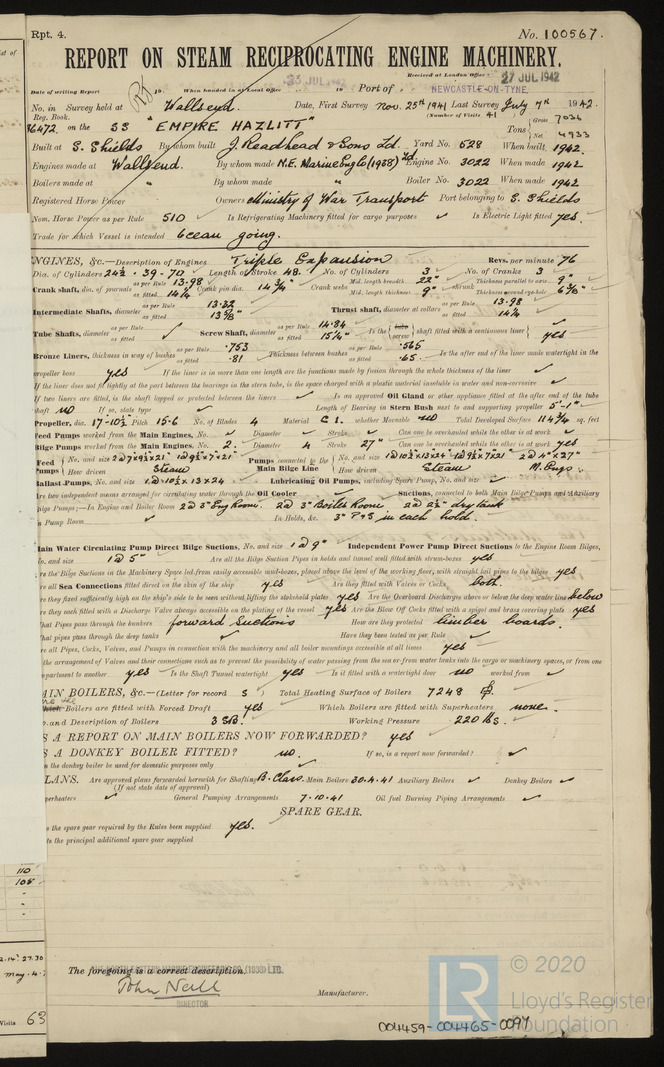 Rpt. 4. No. 100567.
REPORT ON STEAM RECIPROCATING ENGINE MACHINERY.
Received at London Office
23 JUL 1942 27 JUL 1942
Date of writing Report 19 When handed in at Local Office 19 Port of NEWCASTLE-ON-TYNE.
No. in Survey held at Wallsend. Date, First Survey Nov. 25th 1941 Last Survey July 7th 1942.
Reg. Book. (Number of Visits 41)
on the SS "EMPIRE HAZLITT" Tons Gross 7036 Net 4933
Built at S. Shields By whom built J. Readhead & Sons Ld. Yard No. 528 When built 1942.
Engines made at Wallsend By whom made N.E. Marine Eng Co (1938) Ltd. Engine No. 3022 When made 1942
Boilers made at " By whom made " Boiler No. 3022 When made 1942
Registered Horse Power Owners Ministry of War Transport Port belonging to S. Shields
Nom. Horse Power as per Rule 510 Is Refrigerating Machinery fitted for cargo purposes ✓ Is Electric Light fitted yes.
Trade for which Vessel is intended Ocean going.
NGINES, &c.—Description of Engines Triple Expansion Revs. per minute 76
Dia. of Cylinders 24½ - 39 - 70 Length of Stroke 48. No. of Cylinders 3 No. of Cranks 3
Crank shaft, dia. of journals as per Rule 13.98 as fitted 14¼ Crank pin dia. 14¼" Crank webs Mid. length breadth 22" Mid. length thickness 9" shrunk Thickness parallel to axis 9" Thickness around eye-hole 6⅜"
Intermediate Shafts, diameter as per Rule 13.32 as fitted 13⅝" Thrust shaft, diameter at collars as per Rule 13.98 as fitted 14¼
Tube Shafts, diameter as per Rule as fitted ✓ Screw Shaft, diameter as per Rule 14.84 as fitted 15¼" Is the tube screw shaft fitted with a continuous liner yes
Bronze Liners, thickness in way of bushes as per Rule .753 as fitted .81 Thickness between bushes as per Rule .565 as fitted .65 Is the after end of the liner made watertight in the
propeller boss yes If the liner is in more than one length are the junctions made by fusion through the whole thickness of the liner ✓
If the liner does not fit tightly at the part between the bearings in the stern tube, is the space charged with a plastic material insoluble in water and non-corrosive ✓
If two liners are fitted, is the shaft lapped or protected between the liners ✓ Is an approved Oil Gland or other appliance fitted at the after end of the tube
shaft no If so, state type ✓ Length of Bearing in Stern Bush next to and supporting propeller 5'-1"
Propeller, dia. 17-10½ Pitch 15-6 No. of Blades 4 Material C.I. whether Moveable no Total Developed Surface 114¾ sq. feet
Feed Pumps worked from the Main Engines, No. ✓ Diameter ✓ Stroke ✓ Can one be overhauled while the other is at work ✓
Bilge Pumps worked from the Main Engines, No. 2 Diameter 4 Stroke 27" Can one be overhauled while the other is at work yes
Feed Pumps No. and size 2@7x9½x21" 1@9½x7x21" Pumps connected to the Main Bilge Line No. and size 1@10½x13x24 1@9½x7x21" 2@4"x27"
How driven Steam How driven Steam M. Engs.
Ballast Pumps, No. and size 1@10½x13x24 Lubricating Oil Pumps, including Spare Pump, No. and size ✓
Are two independent means arranged for circulating water through the Oil Cooler Suctions, connected to both Main Bilge Pumps and Auxiliary
Bilge Pumps;—In Engine and Boiler Room 2@3" Eng Room. 2@3" Boiler Room 2@2½" dry tank
n Pump Room ✓ In Holds, &c. 3" P&S in each hold.
ain Water Circulating Pump Direct Bilge Suctions, No. and size 1@9" Independent Power Pump Direct Suctions to the Engine Room Bilges,
No. and size 1@5" Are all the Bilge Suction Pipes in holds and tunnel well fitted with strum-boxes yes
re the Bilge Suctions in the Machinery Space led from easily accessible mud-boxes, placed above the level of the working floor, with straight tail pipes to the bilges yes
re all Sea Connections fitted direct on the skin of the ship yes Are they fitted with Valves or Cocks both.
re they fixed sufficiently high on the ship's side to be seen without lifting the stokehold plates yes Are the Overboard Discharges above or below the deep water line below
re they each fitted with a Discharge Valve always accessible on the plating of the vessel yes Are the Blow Off Cocks fitted with a spigot and brass covering plate yes
hat Pipes pass through the bunkers forward suctions How are they protected limber boards.
hat pipes pass through the deep tanks ✓ Have they been tested as per Rule ✓
re all Pipes, Cocks, Valves, and Pumps in connection with the machinery and all boiler mountings accessible at all times yes
the arrangement of Valves and their connections such as to prevent the possibility of water passing from the sea or from water tanks into the cargo or machinery spaces, or from one
partment to another yes Is the Shaft Tunnel watertight yes Is it fitted with a watertight door no worked from ✓
AIN BOILERS, &c.—(Letter for record S) Total Heating Surface of Boilers 7248
Boilers are fitted with Forced Draft yes Which Boilers are fitted with Superheaters none.
o. and Description of Boilers 3 SB. Working Pressure 220 lbs.
S A REPORT ON MAIN BOILERS NOW FORWARDED? yes
S A DONKEY BOILER FITTED? no. If so, is a report now forwarded?
n the donkey boiler be used for domestic purposes only
LANS. Are approved plans forwarded herewith for Shafting B. Class. Main Boilers 30.4.41 Auxiliary Boilers ✓ Donkey Boilers ✓
(If not state date of approval)
perheaters ✓ General Pumping Arrangements 7.10.41 Oil fuel Burning Piping Arrangements ✓
SPARE GEAR.
s the spare gear required by the Rules been supplied yes.
te the principal additional spare gear supplied
110
108
27.30
May.
The foregoing is a correct description,
John Neill
DIRECTOR
Manufacturer.
Visits 63
004459-004465-0097
LR © 2020
Lloyd's Register
Foundation